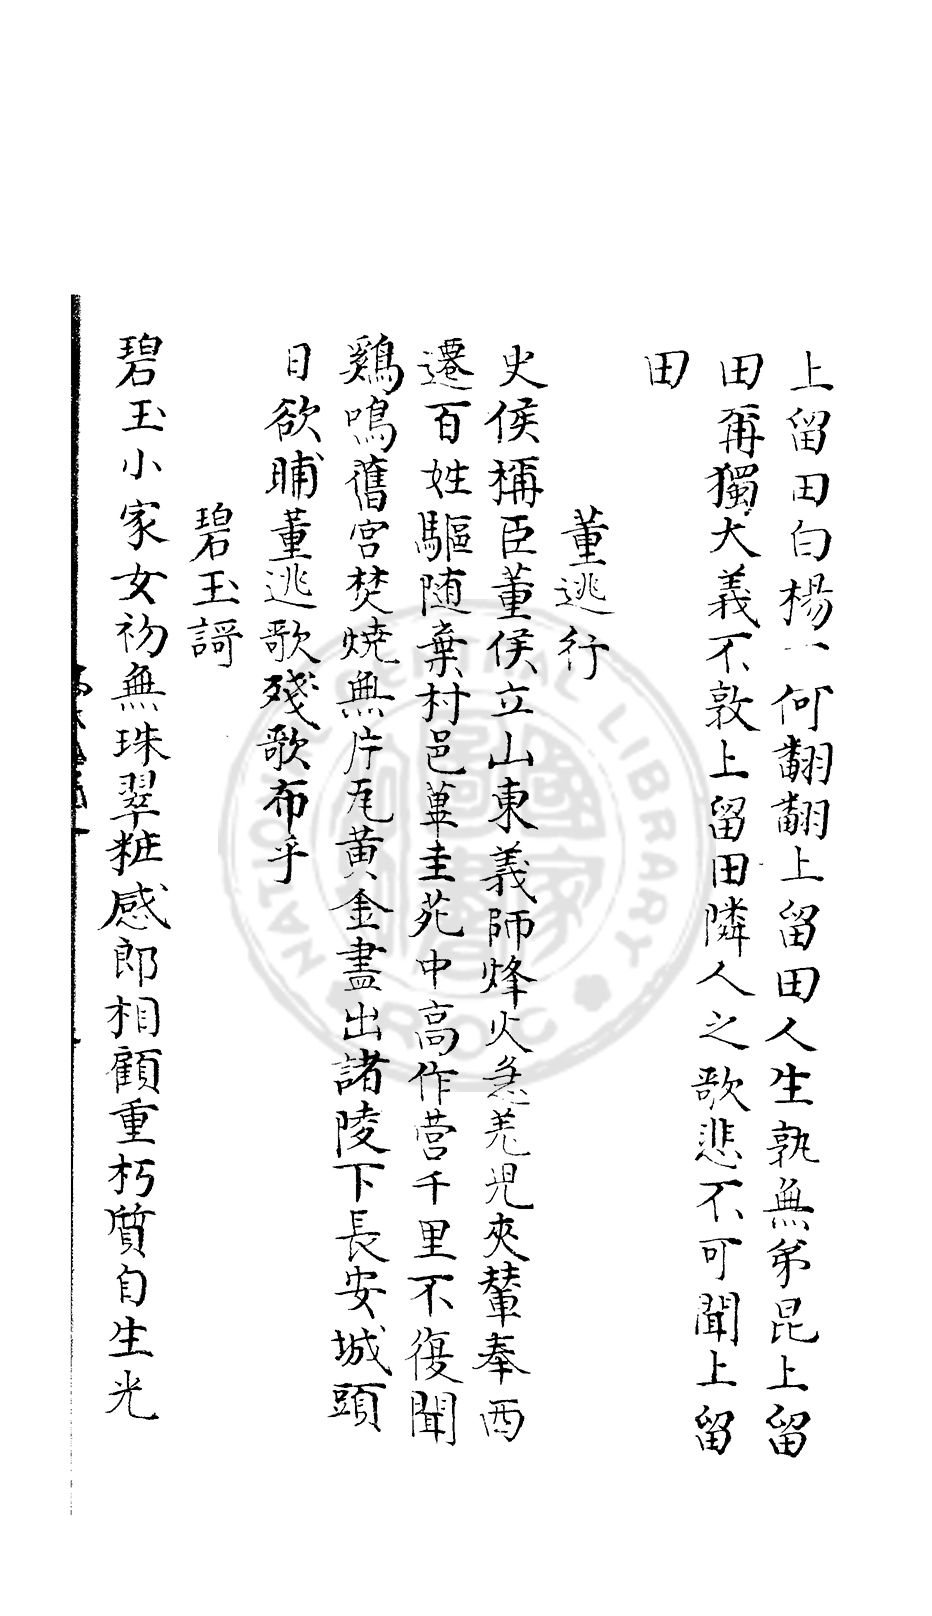 上留田白楊一何翻翻上留田人生孰無弟昆上留
田爾獨大義不敦上留田隣人之歌悲不可聞上留
田
董逃行
史侯稱臣董侯立山東義師烽火急羌兒夾輦奉西
遷百姓驅随棄村邑蓽圭苑中高作营千里不復聞
鷄鳴舊宫焚燒無片瓦黄金盡出諸陵下長安城頭
日欲晡董逃歌殘歌布乎
碧玉謌
碧玉小家女初無珠翠粧感郎相顧重朽質自生光
NATIONAL CENTRAL LIBRARY
ROC